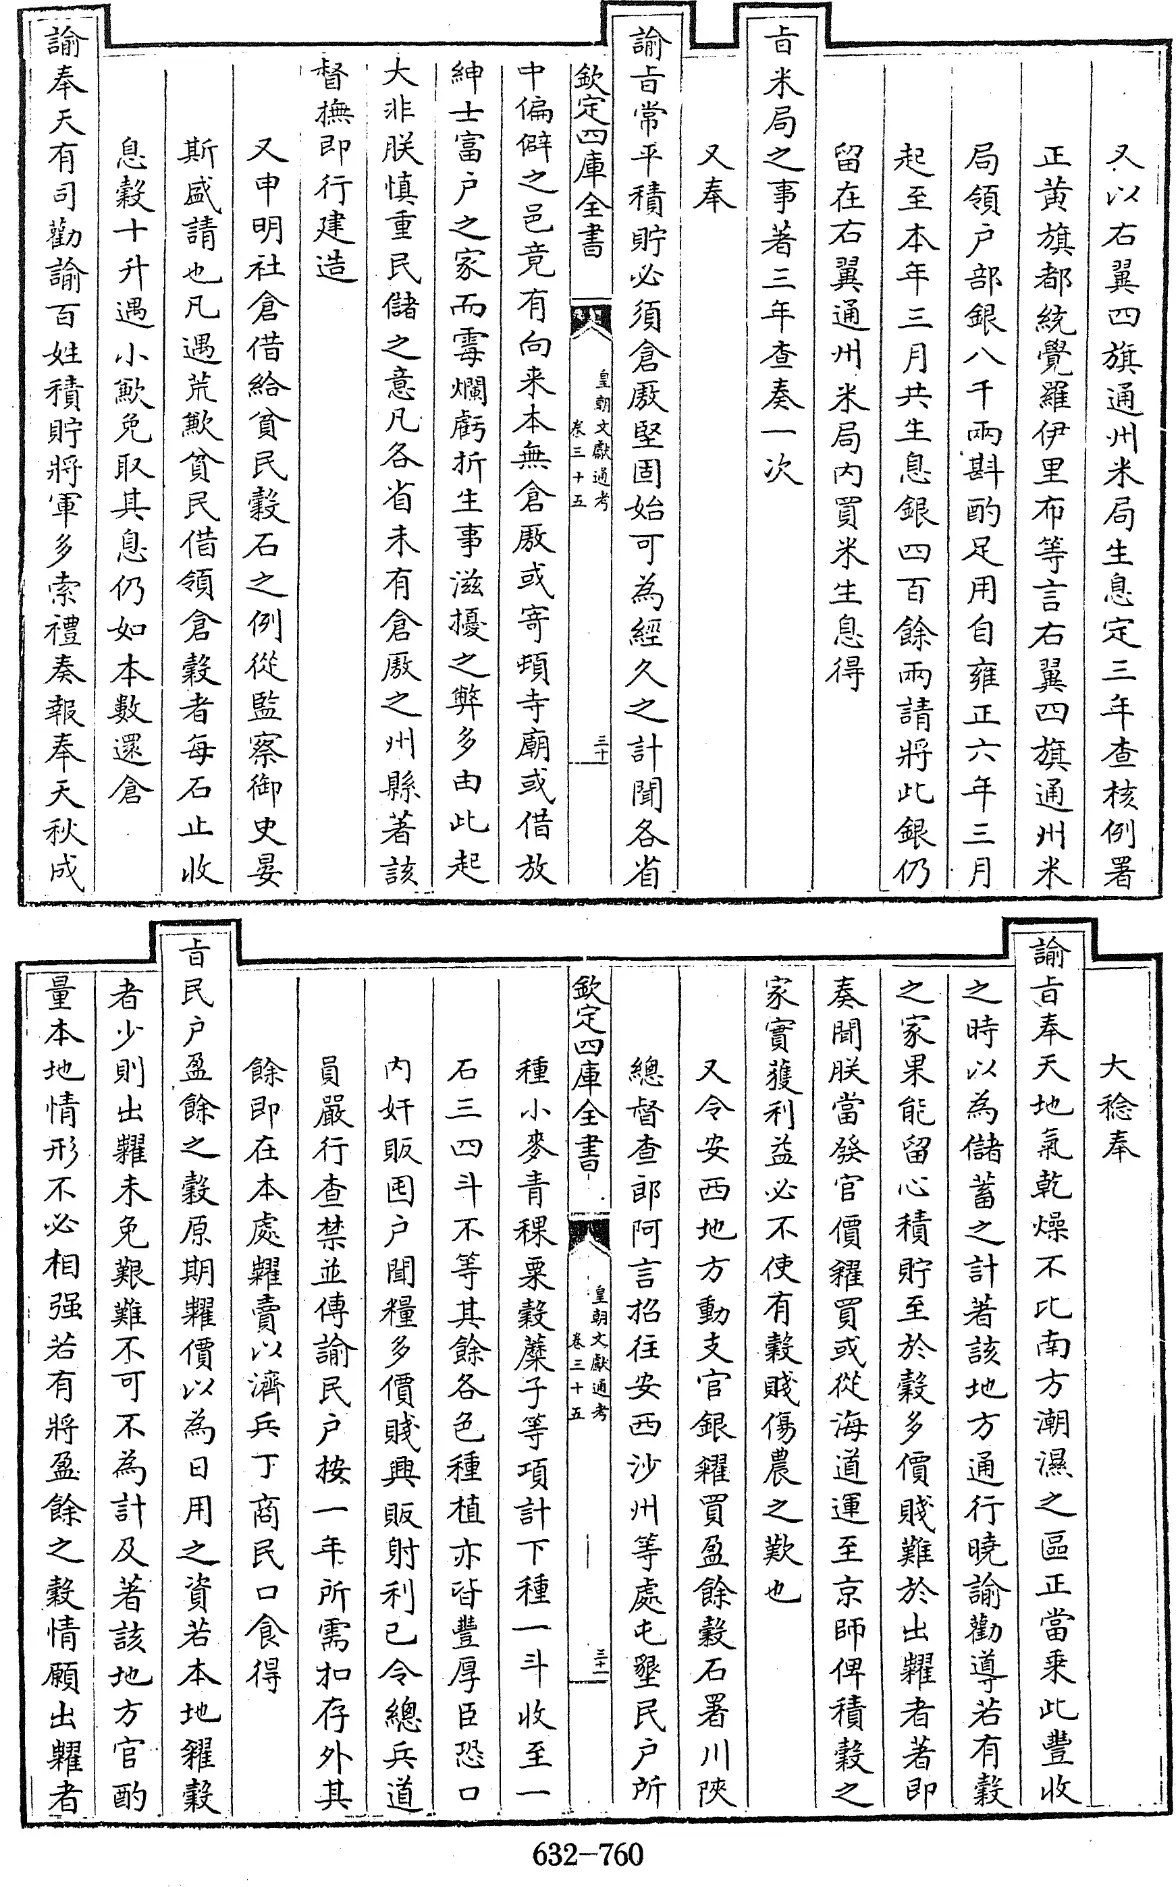 又以右翼四旗通州米局生息定三年查核例署
正黄旗都統覺羅伊里布等言右翼四旗通州米
局領户部銀八千兩斟酌足用自雍正六年三月
起至本年三月共生息銀四百餘兩請將此銀仍
留在右翼通州米局内買米生息得
㫖米局之事著三年查奏一次
又奉
諭㫖常平積貯必須倉厫堅固始可為經久之計聞各省
欽定四庫全書
皇朝文獻通考
卷三十五
三十
中偏僻之邑竟有向来本無倉厫或寄頓寺廟或借放
紳士富户之家而霉爛虧折生事滋擾之弊多由此起
大非朕慎重民儲之意凡各省未有倉厫之州縣著該
督撫即行建造
又申明社倉借給貧民穀石之例從監察御史晏
斯盛請也凡遇荒歉貧民借領倉穀者每石止收
息穀十升遇小歉免取其息仍如本數還倉
諭奉天有司勸諭百姓積貯將軍多索禮奏報奉天秋成
大稔奉
諭㫖奉天地氣乾燥不比南方潮濕之區正當乗此豐收
之時以為儲蓄之計著該地方通行曉諭勸導若有穀
之家果能留心積貯至於穀多價賤難於出糶者著即
奏聞朕當發官價糴買或從海道運至京師俾積穀之
家實獲利益必不使有穀賤傷農之歎也
又令安西地方動支官銀糴買盈餘穀石署川陜
總督查郎阿言招往安西沙州等處屯墾民户所
欽定四庫全書
皇朝文獻通考
卷三十五
三十一
種小麥青稞粟穀穈子等項計下種一斗收至一
石三四斗不等其餘各色種植亦皆豐厚臣恐口
内奸販囤户聞糧多價賤興販射利已令總兵道
員嚴行查禁並傳諭民户按一年所需扣存外其
餘即在本處糶賣以濟兵丁商民口食得
㫖民户盈餘之穀原期糶價以為日用之資若本地糴穀
者少則出糶未免艱難不可不為計及著該地方官酌
量本地情形不必相强若有將盈餘之穀情願出糶者
632-760